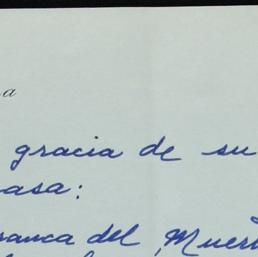 a
gracia de su
asa:
ranca del Muer